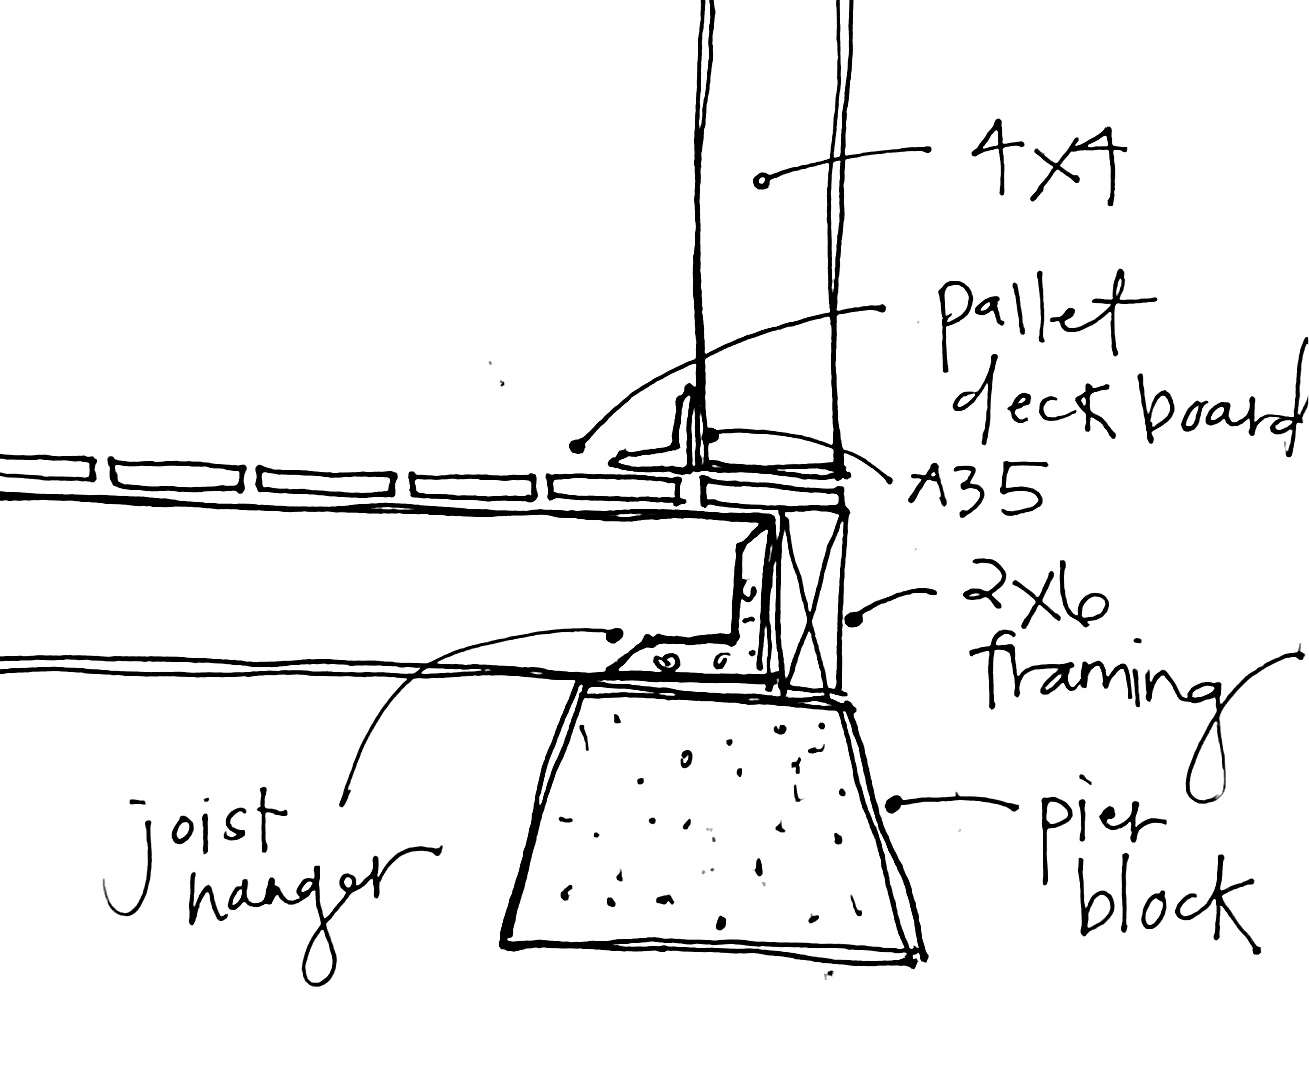 4x4
pallet
deck board
A35
2x6
framing
pier
block
joist
hanger